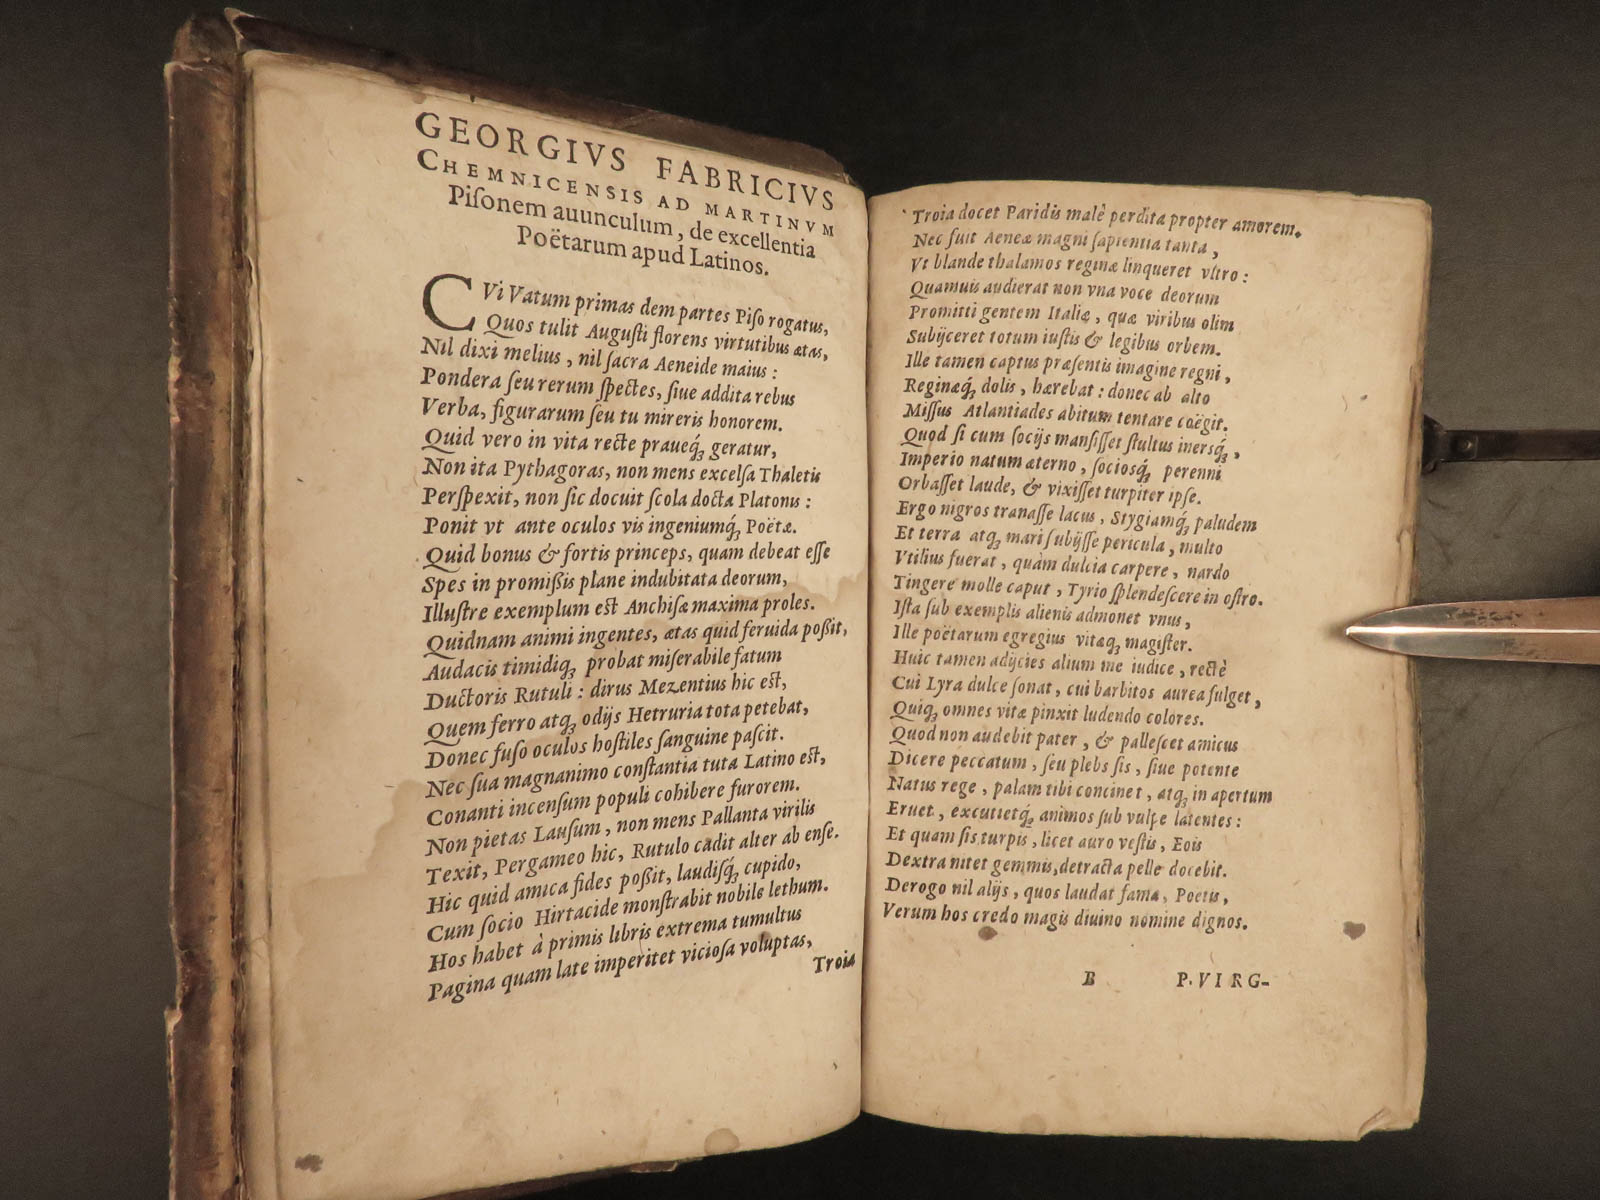 GEORGIVS FABRICIVS
CHEMNICENSIS AD MARTINVM
Piſonem auunculum, de excellentia
Poëtarum apud Latinos.
CVi Vatum primas dem partes Piſo rogatus,
Quos tulit Auguſti florens virtutibus ætas,
Nil dixi melius, nil ſacra Aeneide maius:
Pondera ſeu rerum ſpectes, ſiue addita rebus
Verba, figurarum ſeu tu mireris honorem.
Quid vero in vita recte praueq́ꝫ geratur,
Non ita Pythagoras, non mens excelſa Thaletis
Perſpexit, non ſic docuit ſcola docta Platonis:
Ponit vt ante oculos vis ingeniumq́ꝫ Poëtæ.
Quid bonus & fortis princeps, quam debeat eſſe
Spes in promißis plane indubitata deorum,
Illuſtre exemplum eſt Anchiſæ maxima proles.
Quidnam animi ingentes, ætas quid feruida poßit,
Audacis timidiqꝫ probat miſerabile fatum
Ductoris Rutuli: dirus Mezentius hic eſt,
Quem ferro atqꝫ odijs Hetruria tota petebat,
Donec fuſo oculos hoſtiles ſanguine paſcit.
Nec ſua magnanimo conſtantia tuta Latino eſt,
Conanti incenſum populi cohibere furorem.
Non pietas Lauſum, non mens Pallanta virilis
Texit, Pergameo hic, Rutulo cadit alter ab enſe.
Hic quid amica fides poßit, laudiſq́ꝫ cupido,
Cum ſocio Hirtacide monſtrabit nobile lethum.
Hos habet à primis libris extrema tumultus
Pagina quam late imperitet vicioſa voluptas,
Troia
Troia docet Paridis malè perdita propter amorem.
Nec fuit Aeneæ magni ſapientia tanta,
Vt blande thalamos reginæ linqueret vltro:
Quamuis audierat non vna voce deorum
Promitti gentem Italiæ, quæ viribus olim
Subijceret totum iuſtis & legibus orbem.
Ille tamen captus præſentis imagine regni,
Reginæq́ꝫ dolis, hærebat: donec ab alto
Miſſus Atlantiades abitum tentare coëgit.
Quod ſi cum ſocijs manſiſſet ſtultus inersq́ꝫ,
Imperio natum æterno, ſociosq́ꝫ perenni
Orbaſſet laude, & vixiſſet turpiter ipſe.
Ergo nigros tranaſſe lacus, Stygiamq́ꝫ paludem
Et terra atqꝫ mari ſubijſſe pericula, multo
Vtilius fuerat, quàm dulcia carpere, nardo
Tingere molle caput, Tyrio ſplendeſcere in oſtro.
Iſta ſub exemplis alienis admonet vnus,
Ille poëtarum egregius vitæqꝫ magiſter.
Huic tamen adijcies alium me iudice, rectè
Cui Lyra dulce ſonat, cui barbitos aurea fulget,
Quiqꝫ omnes vitæ pinxit ludendo colores.
Quod non audebit pater, & palleſcet amicus
Dicere peccatum, ſeu plebs ſis, ſiue potente
Natus rege, palam tibi concinet, atqꝫ in apertum
Eruet, excutietq́ꝫ animos ſub vulpe latentes:
Et quam ſis turpis, licet auro veſtis, Eois
Dextra nitet gemmis, detracta pelle docebit.
Derogo nil alijs, quos laudat fama, Poetis,
Verum hos credo magis diuino nomine dignos.
B P. VIRG-